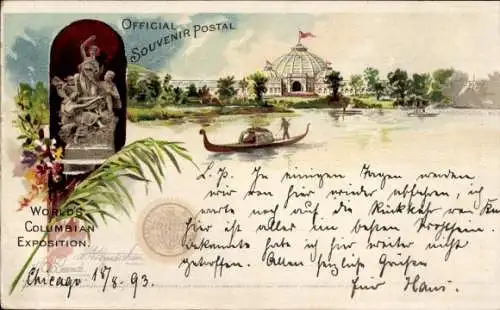 OFFICIAL
SOUVENIR POSTAL
WORLD'S
COLUMBIAN
EXPOSITION.
Chicago 18/8. 93.
L. P. In einigen Tagen werden
wir von hier wieder abfahren, ich
warte noch auf die Rückkehr von
hier ist alles im besten
Bekannte habe ich hier weiter nicht
getroffen. Allen herzliche Grüßen
für Hans.